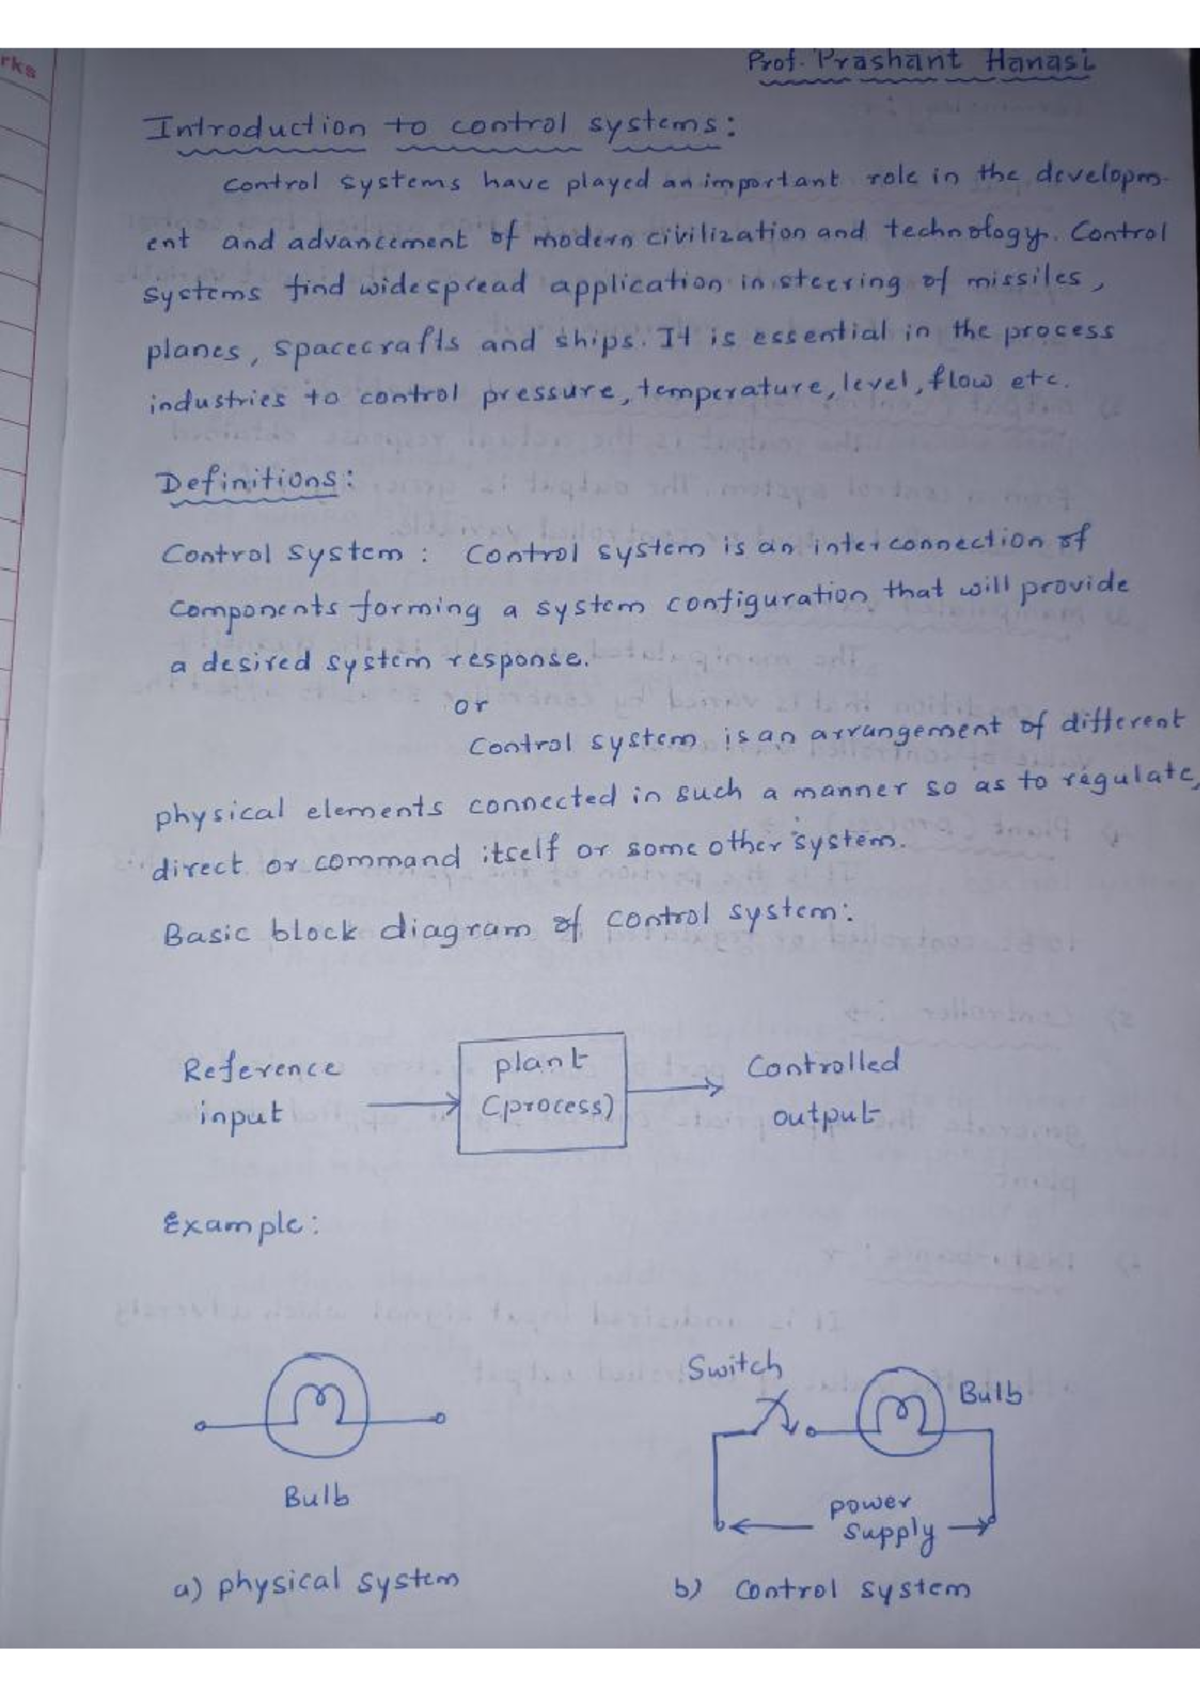 rks
Prof. Prashant Hanasi
Introduction to control systems:
Control systems have played an important role in the developm-
ent and advancement of modern civilization and technology. Control
systems find widespread application in steering of missiles,
planes, spacecrafts and ships. It is essential in the process
industries to control pressure, temperature, level, flow etc.
Definitions:
Control system : Control system is an interconnection of
components forming a system configuration that will provide
a desired system response.
or
Control system is an arrangement of different
physical elements connected in such a manner so as to regulate,
direct or command itself or some other system.
Basic block diagram of control system:
Reference
input
plant
(process)
Controlled
output
Example:
Bulb
a) physical system
Switch
Bulb
power
supply
b) control system